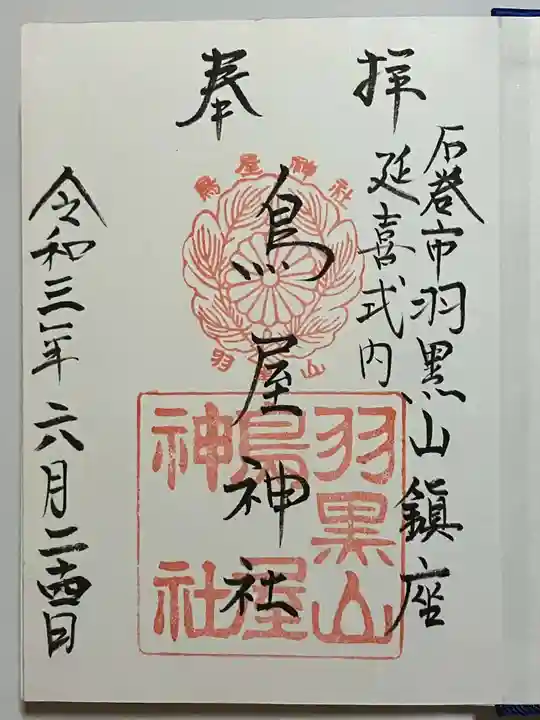 石巻市羽黒山鎮座
延喜式内
奉拝
鳥屋神社
鳥屋神社
羽黒山
羽黒山
鳥屋
神社
令和三年六月二十四日